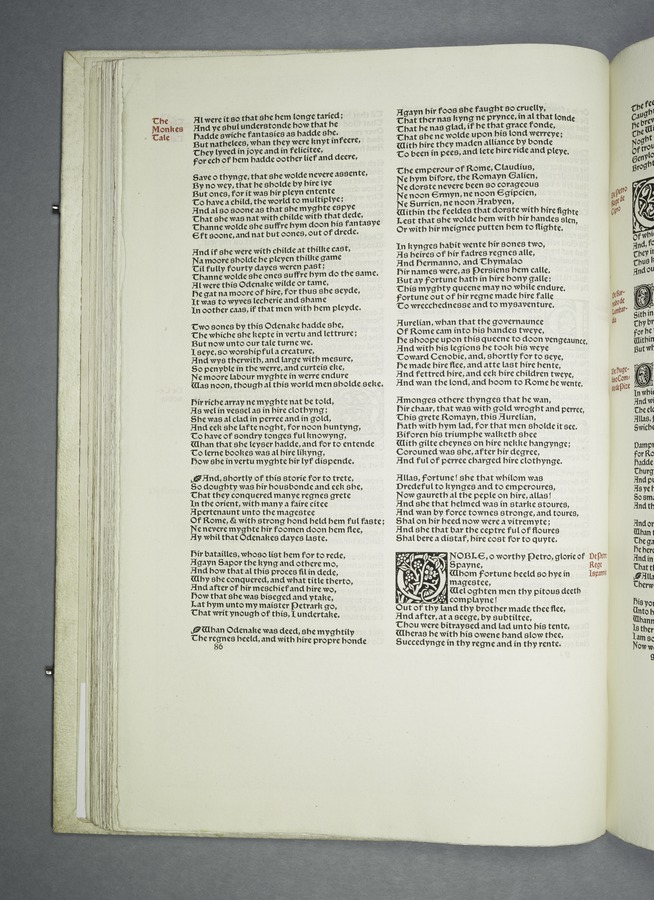 The
Monkes
Tale
Al were it so that she hem longe taried;
And ye shul understonde how that he
Hadde swiche fantasies as hadde she.
But nathelees, whan they were knyt infeere,
They lyved in joye and in felicitee,
For ech of hem hadde oother lief and deere,
Save o thynge, that she wolde nevere assente,
By no wey, that he sholde by hire lye
But ones, for it was hir pleyn entente
To have a child, the world to multiplye;
And al so soone as that she myghte espye
That she was nat with childe with that dede,
Thanne wolde she suffre hym doon his fantasye
Eft soone, and nat but oones, out of drede.
And if she were with childe at thilke cast,
Na moore sholde he pleyen thilke game
Til fully fourty dayes weren past;
Thanne wolde she ones suffre hym do the same.
Al were this Odenake wilde or tame,
He gat na moore of hire, for thus she seyde,
It was to wyves lecherie and shame
In oother caas, if that men with hem pleyde.
Two sones by this Odenake hadde she,
The whiche she kepte in vertu and lettrure;
But now unto our tale turne we.
I seye, so worshipful a creature,
And wys therwith, and large with mesure,
So penyble in the werre, and curteis eke,
Ne moore labour myghte in werre endure
Was noon, though al this world men sholde seke.
Hir riche array ne myghte nat be told,
As wel in vessel as in hire clothyng;
She was al clad in perree and in gold,
And eek she lafte noght, for noon huntyng,
To have of sondry tonges ful knowyng,
Whan that she leyser hadde, and for to entende
To lerne bookes was al hire likyng,
How she in vertu myghte hir lyf dispende.
And, shortly of this storie for to trete,
So doughty was hir housbonde and eek she,
That they conquered manye regnes grete
In the orient, with many a faire citee
Apertenaunt unto the magestee
Of Rome, & with strong hond held hem ful faste;
Ne nevere myghte hir foomen doon hem flee,
Ay whil that Odenakes dayes laste.
Hir batailles, whoso list hem for to rede,
Agayn Sapor the kyng and othere mo,
And how that al this proces fil in dede,
Why she conquered, and what title therto,
And after of hir meschief and hire wo,
How that she was biseged and ytake,
Lat hym unto my maister Petrark go,
That writ ynough of this, I undertake.
Whan Odenake was deed, she myghtily
The regnes heeld, and with hire propre honde
86
Agayn hir foos she faught so cruelly,
That ther nas kyng ne prynce, in al that londe
That he nas glad, if he that grace fonde,
That she ne wolde upon his lond werreye;
With hire they maden alliance by bonde
To been in pees, and lete hire ride and pleye.
The emperour of Rome, Claudius,
Ne hym bifore, the Romayn Galien,
Ne dorste nevere been so corageous
Ne noon Ermyn, ne noon Egipcien,
Ne Surrien, ne noon Arabyen,
Within the feeldes that dorste with hire fighte
Lest that she wolde hem with hir handes slen,
Or with hir meignee putten hem to flighte.
In kynges habit wente hir sones two,
As heires of hir fadres regnes alle,
And Hermanno, and Thymalao
Hir names were, as Persiens hem calle.
But ay Fortune hath in hire hony galle:
This myghty queene may no while endure.
Fortune out of hir regne made hire falle
To wrecchednesse and to mysaventure.
Aurelian, whan that the governaunce
Of Rome cam into his handes tweye,
He shoope upon this queene to doon vengeaunce,
And with his legions he took his weye
Toward Cenobie, and, shortly for to seye,
He made hire flee, and atte last hire hente,
And fettred hire, and eek hire children tweye,
And wan the lond, and hoom to Rome he wente.
Amonges othere thynges that he wan,
Hir chaar, that was with gold wroght and perree,
This grete Romayn, this Aurelian,
Hath with hym lad, for that men sholde it see.
Biforen his triumphe walketh shee
With gilte cheynes on hire nekke hangynge;
Corouned was she, after hir degree,
And ful of perree charged hire clothynge.
Allas, Fortune! she that whilom was
Dredeful to kynges and to emperoures,
Now gaureth al the peple on hire, allas!
And she that helmed was in starke stoures,
And wan by force townes stronge, and toures,
Shal on hir heed now were a vitremyte;
And she that bar the ceptre ful of floures
Shal bere a distaf, hire cost for to quyte.
O NOBLE, o worthy Petro, glorie of
Spayne,
Whom Fortune heeld so hye in
magestee,
Wel oghten men thy pitous deeth
complayne!
Out of thy land thy brother made thee flee,
And after, at a seege, by subtiltee,
Thou were bitraysed and lad unto his tente,
Wheras he with his owene hand slow thee,
Succedynge in thy regne and in thy rente.
De Petro
Rege
Ispannie